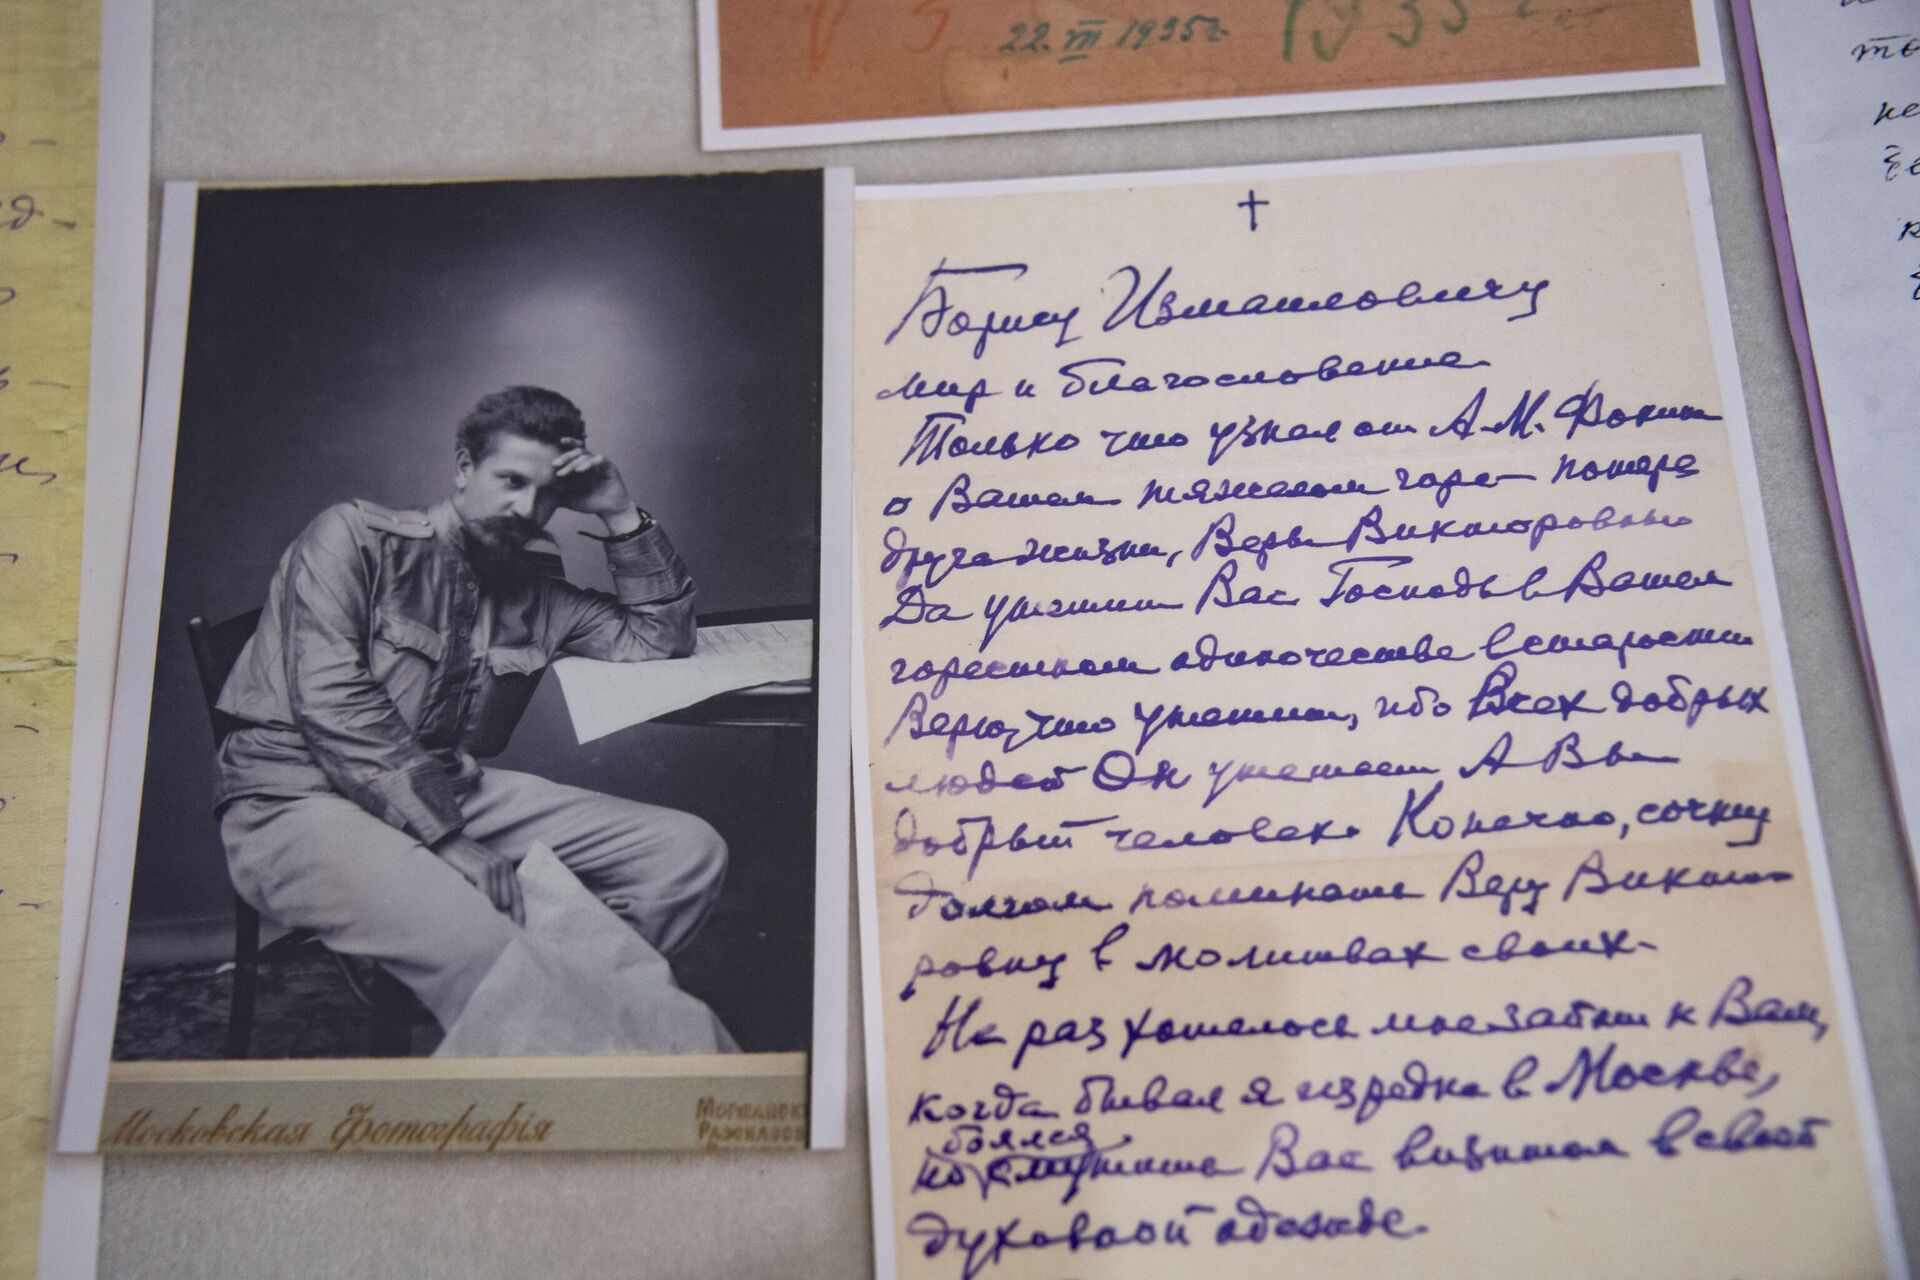 22.VIII 1935г.
†
Борису Измаиловичу
мир и благословение
Только что узнал от А.М. Фокина
о Вашем тяжелом горе – потере
друга жизни, Веры Викторовны
Да утешит Вас Господь в Вашем
горестном одиночестве в старости
Верю, что утешит, ибо Всех добрых
людей Он утешает А Вы
добрый человек. Конечно, сочту
долгом поминать Веру Викто-
ровну в молитвах своих.
Не раз хотелось мне зайти к Вам,
когда бывал я изредка в Москве,
боялся
но смутить Вас визитом в своей
духовной одежде.
Московская Фотографія